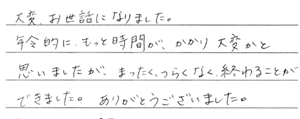 大変、お世話になりました。
年令的に、もっと時間が、かかり大変かと
思いましたが、まったく、つらくなく、終わることが
できました。 ありがとうございました。